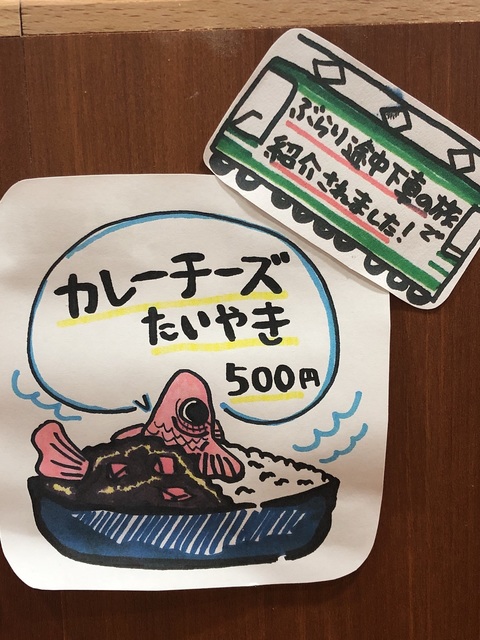 ぶらり途中下車の旅で
紹介されました!
カレーチーズ
たいやき
500円